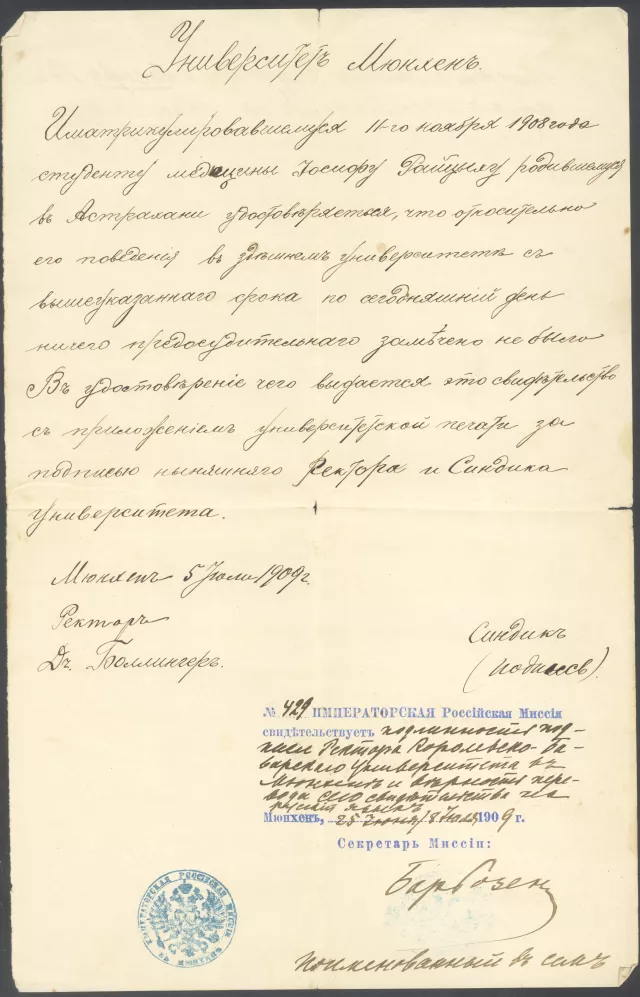 Университетъ Мюнхенъ.
Иматрикулировавшемуся 11-го ноября 1908 года
студенту медицины Іосифу Райцыху родившемуся
въ Астрахани удостовѣряется, что относительно
его поведенія въ здѣшнемъ университетѣ съ
вышеуказаннаго срока по сегодняшній день
ничего предосудительнаго замѣчено не было
Въ удостовѣреніе чего выдается это свидѣтельство
съ приложеніемъ университетской печати за
подписью нынѣшняго Ректора и Синдика
университета.
Мюнхенъ 5 Іюля 1909 г.
Ректоръ
Дч. Боллингеръ.
Синдикъ
(подпись).
№ 429 ИМПЕРАТОРСКАЯ Россійская Миссія
свидѣтельствуетъ подлинность под-
писи Ректора Королевско-Ба-
варскаго Университета въ
Мюнхенѣ и вѣрность пере-
вода сего свидѣтельства на
русскій языкъ
Мюнхенъ, 25 Іюня/8 Іюля 1909 г.
Секретарь Миссіи:
ИМПЕРАТОРСКАЯ РОССІЙСКАЯ МИССІЯ
ВЪ МЮНХЕНѢ
поименованный въ семъ